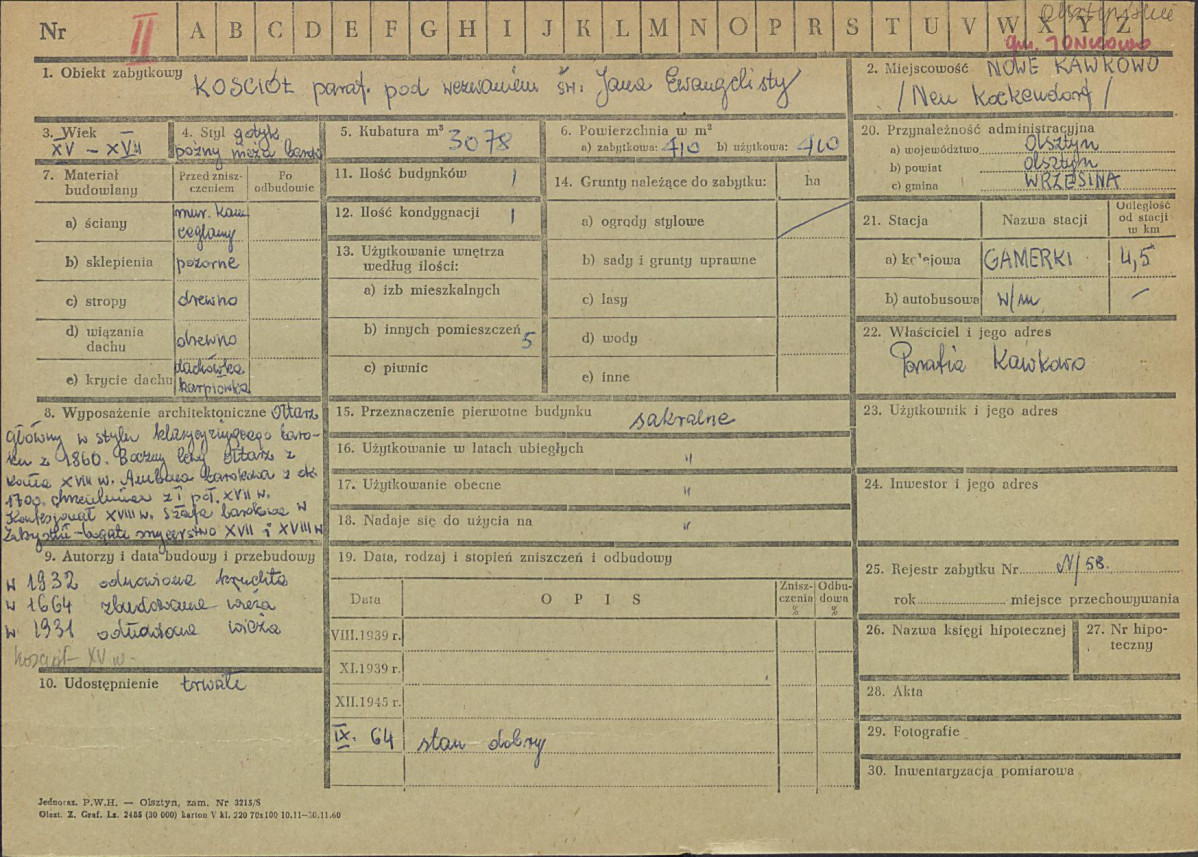 Nr II A B C D E F G H I J K L M N O P R S T U V W X Y Z
olsztyńskie
gm. JONKOWO
1. Obiekt zabytkowy KOŚCIÓŁ paraf. pod wezwaniem św. Jana Ewangelisty
2. Miejscowość NOWE KAWKOWO
/Neu Kockendorf/
3. Wiek XV – XVII
4. Styl gotyk
późny wieża barok
5. Kubatura m³ 3078
6. Powierzchnia w m²
a) zabytkowa: 410 b) użytkowa: 410
7. Materiał budowlany
Przed zniszczeniem
Po odbudowie
a) ściany mur. kam ceglany
b) sklepienia pozorne
c) stropy drewno
d) wiązania dachu drewno
e) krycie dachu dachówka karpiówka
8. Wyposażenie architektoniczne Ołtarz
główny w stylu klasycyzującego baro-
ku z 1860. Boczny lewy ołtarz z
końca XVIII w. Ambona barokowa z ok.
1700, chrzcielnica z I poł. XVII w.
Konfesjonał XVIII w. Szafa barokowa w
Zakrystii - bogate snycerstwo XVII i XVIII w
9. Autorzy i data budowy i przebudowy
w 1932 odnowiona kruchta
w 1664 zbudowana wieża
w 1931 odnowiona wieża
kościół XV w.
10. Udostępnienie trwałe
11. Ilość budynków 1
12. Ilość kondygnacji 1
13. Użytkowanie wnętrza
według ilości:
a) izb mieszkalnych
b) innych pomieszczeń 5
c) piwnic
14. Grunty należące do zabytku: ha
a) ogrody stylowe
b) sady i grunty uprawne
c) lasy
d) wody
e) inne
15. Przeznaczenie pierwotne budynku sakralne
16. Użytkowanie w latach ubiegłych "
17. Użytkowanie obecne "
18. Nadaje się do użycia na "
19. Data, rodzaj i stopień zniszczeń i odbudowy
Data OPIS Zniszczenia % Odbudowa %
VIII.1939 r.
XI.1939 r.
XII.1945 r.
IX. 64 stan dobry
20. Przynależność administracyjna
a) województwo Olsztyn
b) powiat Olsztyn
c) gmina WRZESINA
21. Stacja Nazwa stacji Odległość od stacji w km
a) kolejowa GAMERKI 4,5
b) autobusowa w/m –
22. Właściciel i jego adres
Parafia Kawkowo
23. Użytkownik i jego adres
24. Inwestor i jego adres
25. Rejestr zabytku Nr N/58.
rok miejsce przechowywania
26. Nazwa księgi hipotecznej
27. Nr hipoteczny
28. Akta
29. Fotografie
30. Inwentaryzacja pomiarowa
Jednoraz. P.W.H. — Olsztyn, zam. Nr 3215/S
Olszt. Z. Graf. Lz. 2455 (30 000) karton V kl. 220 70x100 10.11—30.11.60